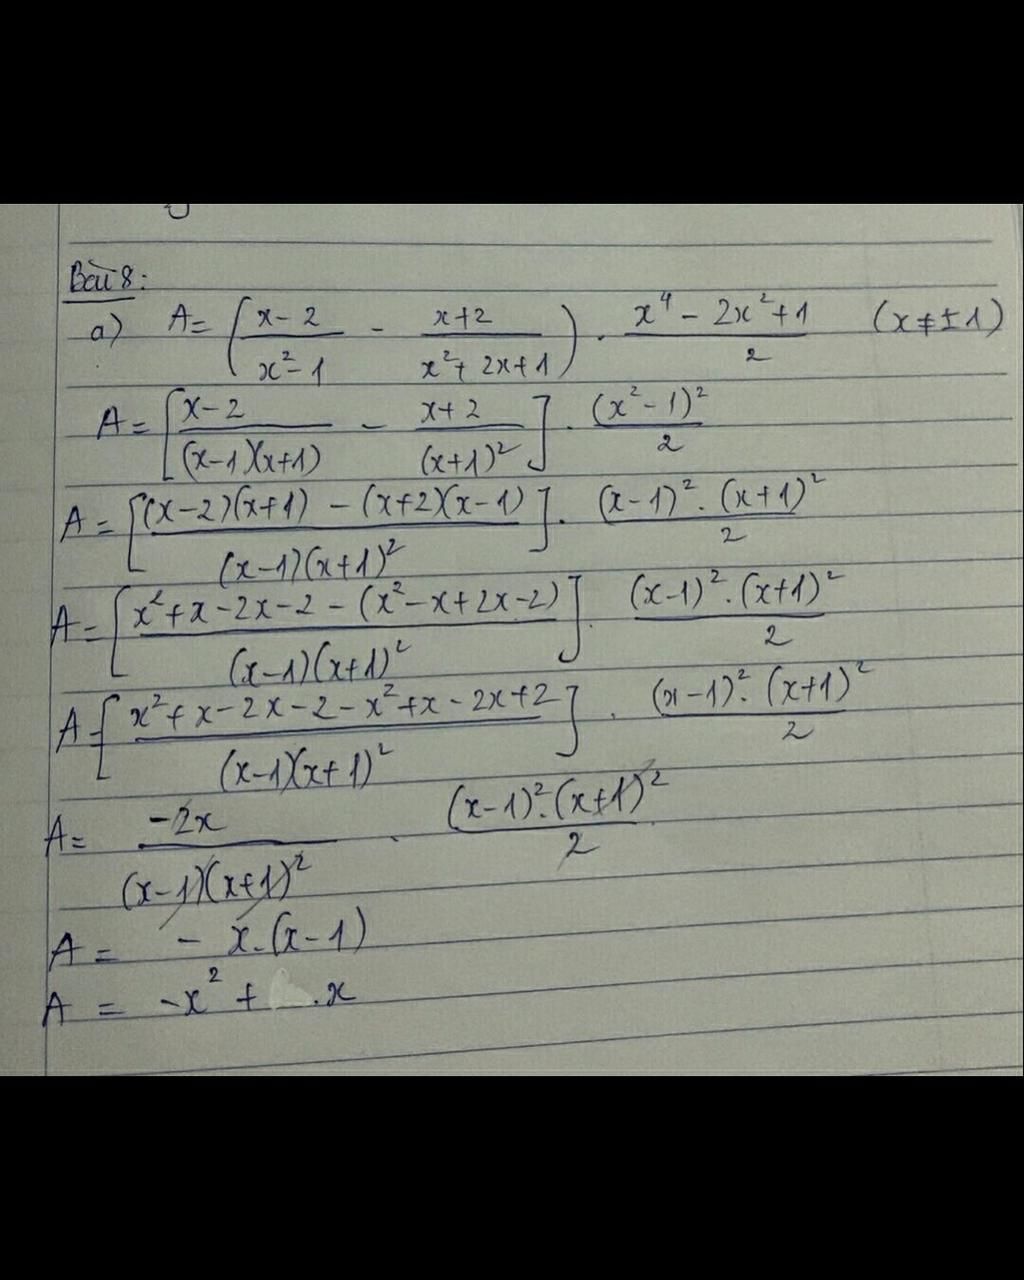 Bài 8:
a) A = ( (x-2)/(x²-1) - (x+2)/(x²+2x+1) ) . (x⁴ - 2x² + 1)/2 (x ≠ ±1)
A = [ (x-2)/((x-1)(x+1)) - (x+2)/((x+1)²) ] . (x²-1)²/2
A = [ ((x-2)(x+1) - (x+2)(x-1))/((x-1)(x+1)²) ] . ((x-1)² . (x+1)²)/2
A = [ (x²+x-2x-2-(x²-x+2x-2))/((x-1)(x+1)²) ] . ((x-1)² . (x+1)²)/2
A = [ (x²+x-2x-2-x²+x-2x+2)/((x-1)(x+1)²) ] . ((x-1)² . (x+1)²)/2
A = (-2x)/((x-1)(x+1)²) . ((x-1)² . (x+1)²)/2
A = - x.(x-1)
A = -x² + .x